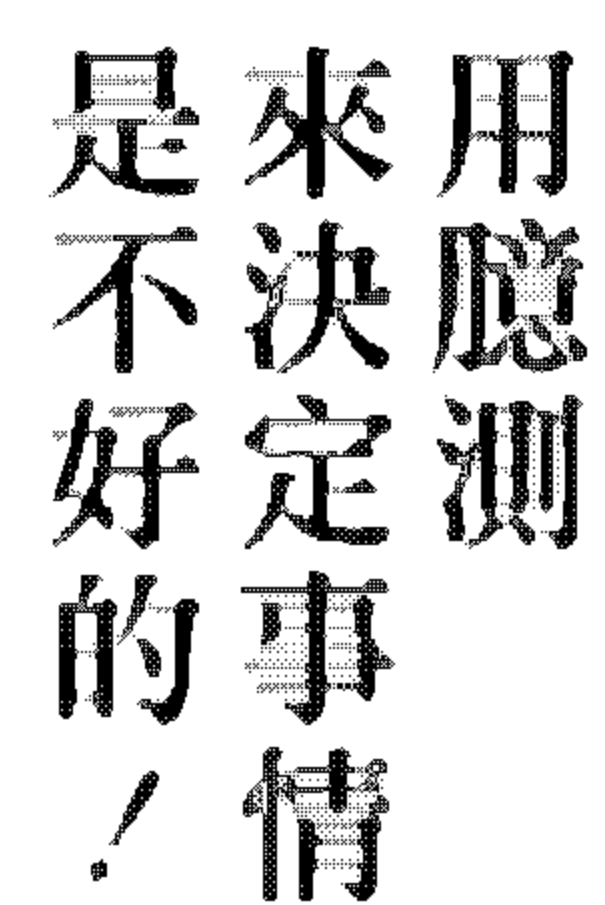 用臆測
來決定事情
是不好的！